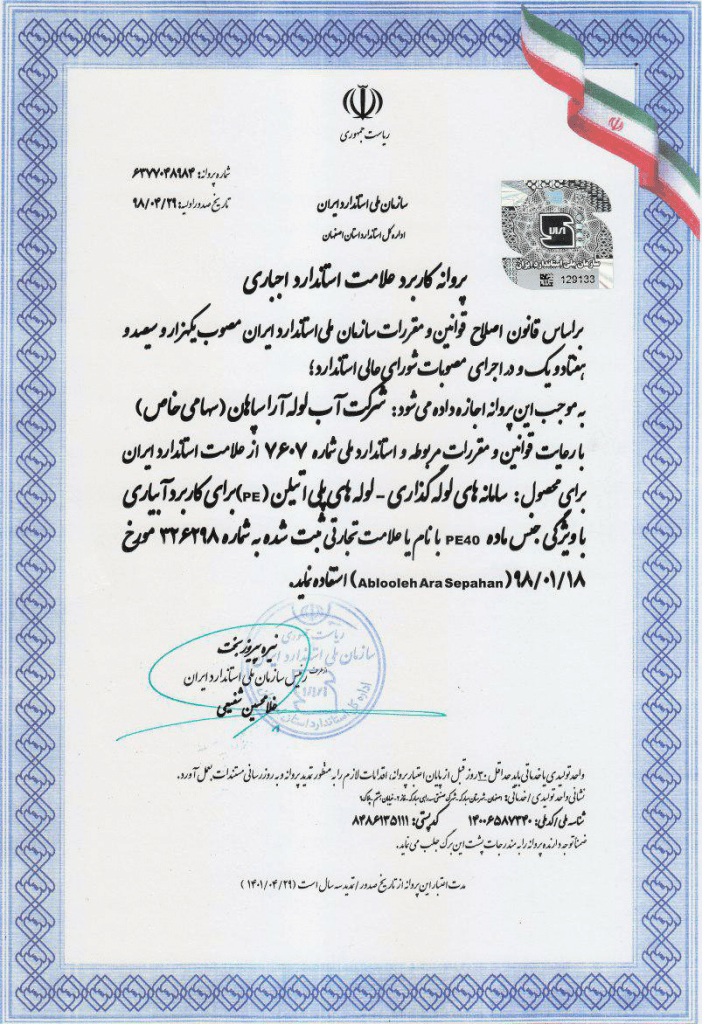 ریاست جمهوری
شماره پروانه: ۶۳۷۷۰۴۸۹۸۴
تاریخ صدور اولیه: ۹۸/۰۴/۲۹
سازمان ملی استاندارد ایران
اداره کل استاندارد استان اصفهان
سازمان ملی استاندارد ایران
129133
پروانه کاربرد علامت استاندارد اجباری
براساس قانون اصلاح قوانین و مقررات سازمان ملی استاندارد ایران مصوب یکهزار و سیصد و
هفتاد و یک و در اجرای مصوبات شورای عالی استاندارد؛
به موجب این پروانه اجازه داده می شود: شرکت آب لوله آرا سپاهان (سهامی خاص)
با رعایت قوانین و مقررات مربوطه و استاندارد ملی شماره ۷۶۰۷ از علامت استاندارد ایران
برای محصول: سامانه های لوله گذاری - لوله های پلی اتیلن (PE) برای کاربرد آبیاری
با ویژگی جنس ماده PE40 با نام یا علامت تجارتی ثبت شده به شماره ۳۲۶۲۹۸ مورخ
۹۸/۰۱/۱۸ (Ablooleh Ara Sepahan) استفاده نماید.
ریاست جمهوری
سازمان ملی استاندارد ایران
اداره کل استاندارد استان
نیره پیروزبخت
رئیس سازمان ملی استاندارد ایران
از طرف
غلامحسین شفیعی
واحد تولیدی یا خدماتی باید حداقل ۳۰ روز قبل از پایان اعتبار پروانه، اقدامات لازم را به منظور تمدید پروانه و به روز رسانی مستندات بعمل آورد.
نشانی واحد تولیدی / خدماتی: اصفهان، شهرستان مبارکه، شهرک صنعتی
شناسه ملی / کد ملی: ۱۴۰۰۶۵۸۷۳۴۰ کد پستی: ۸۴۸۶۱۳۵۱۱۱
ضمنا توجه دارنده پروانه را به مندرجات پشت این برگ جلب می نماید.
مدت اعتبار این پروانه از تاریخ صدور / تمدید سه سال است (۱۴۰۱/۰۴/۲۹)